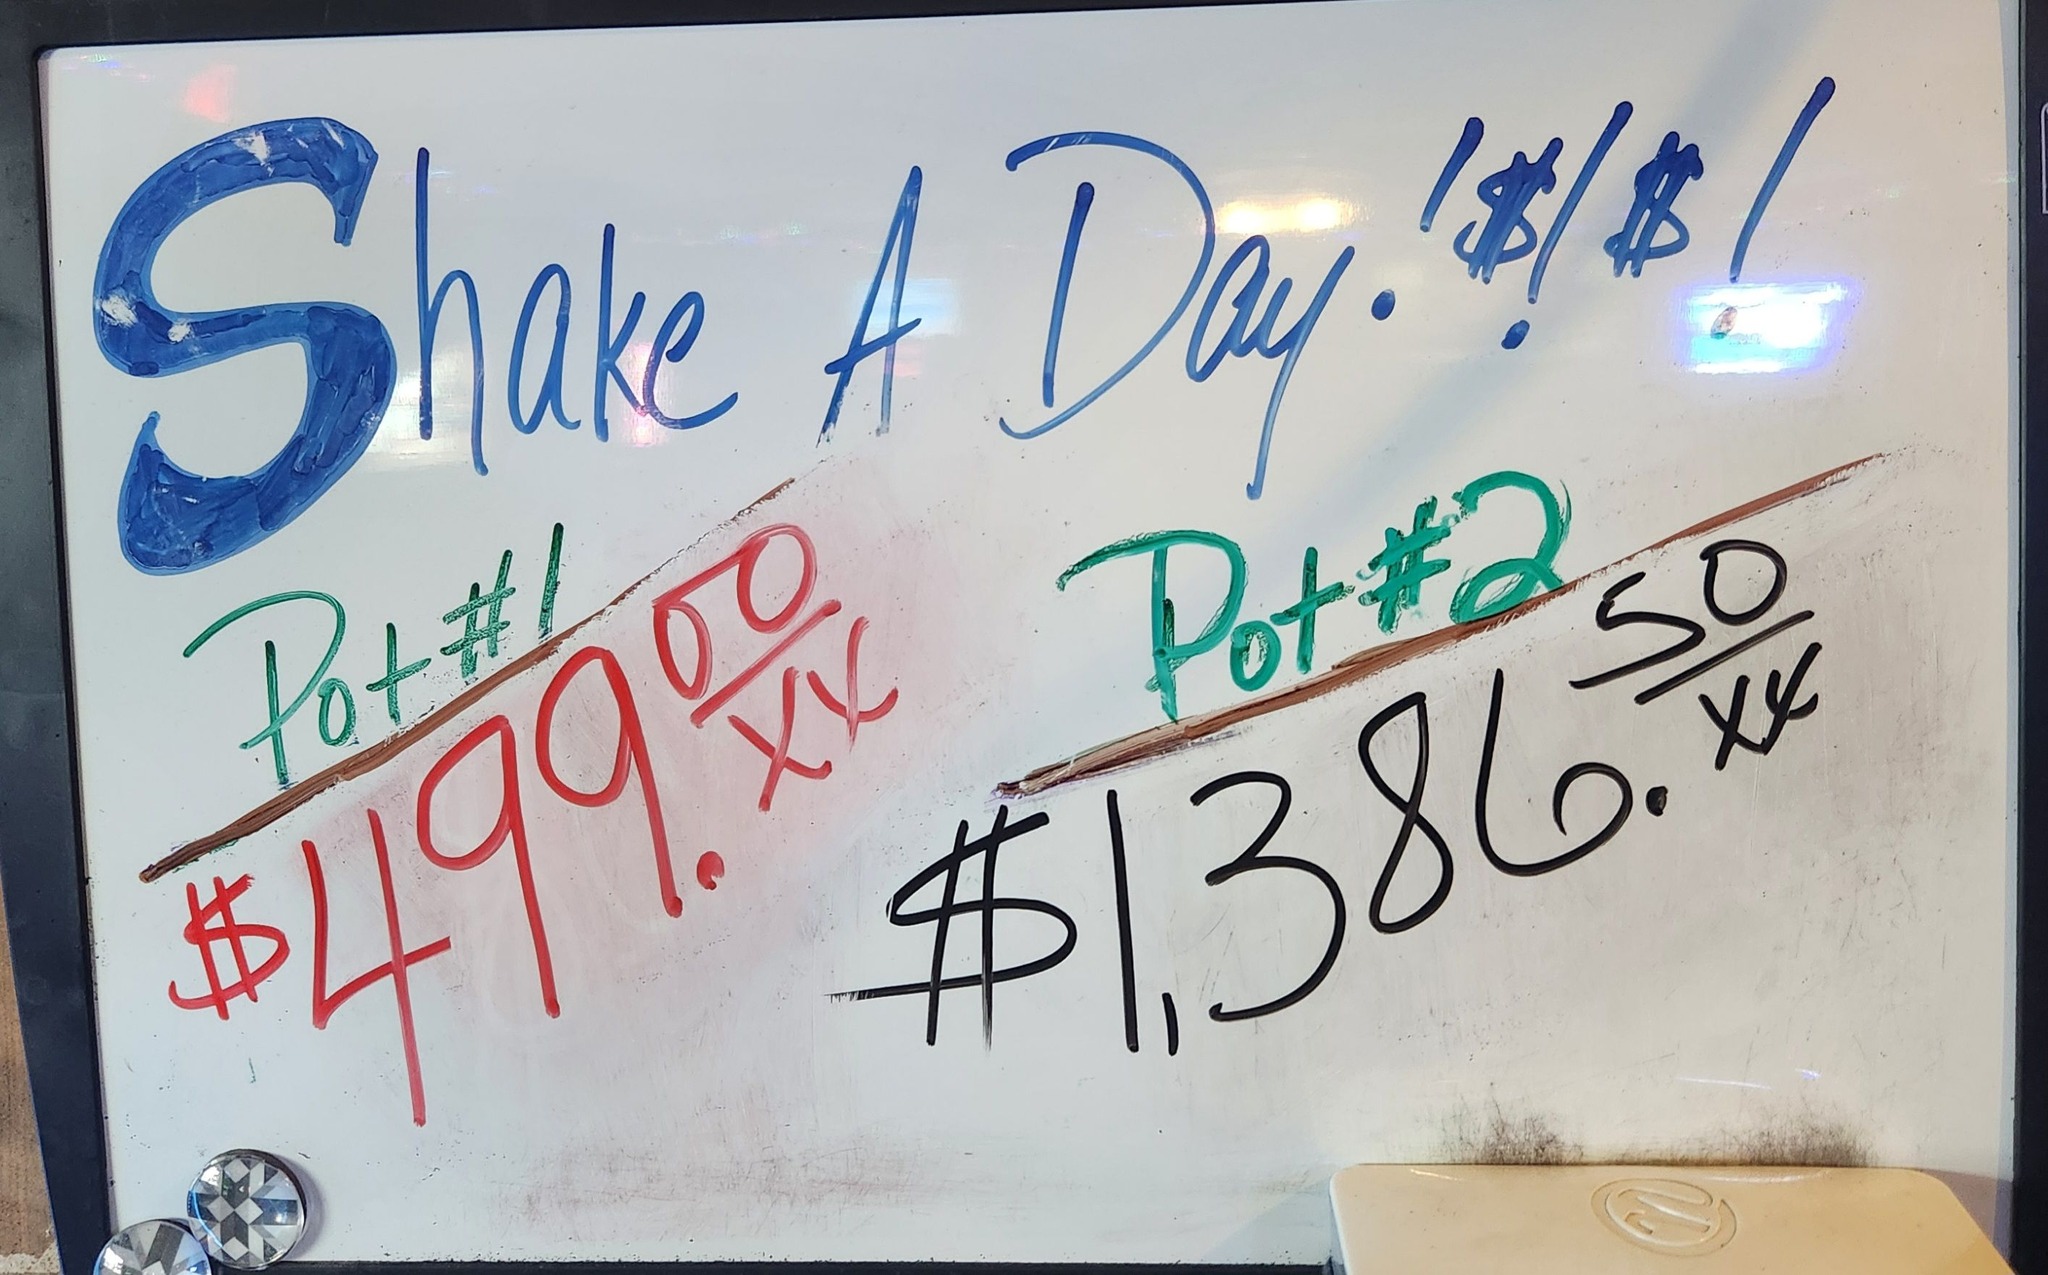 Shake A Day! $! $!
Pot #1
$499.00/xx
Pot #2
$1,386.50/xx